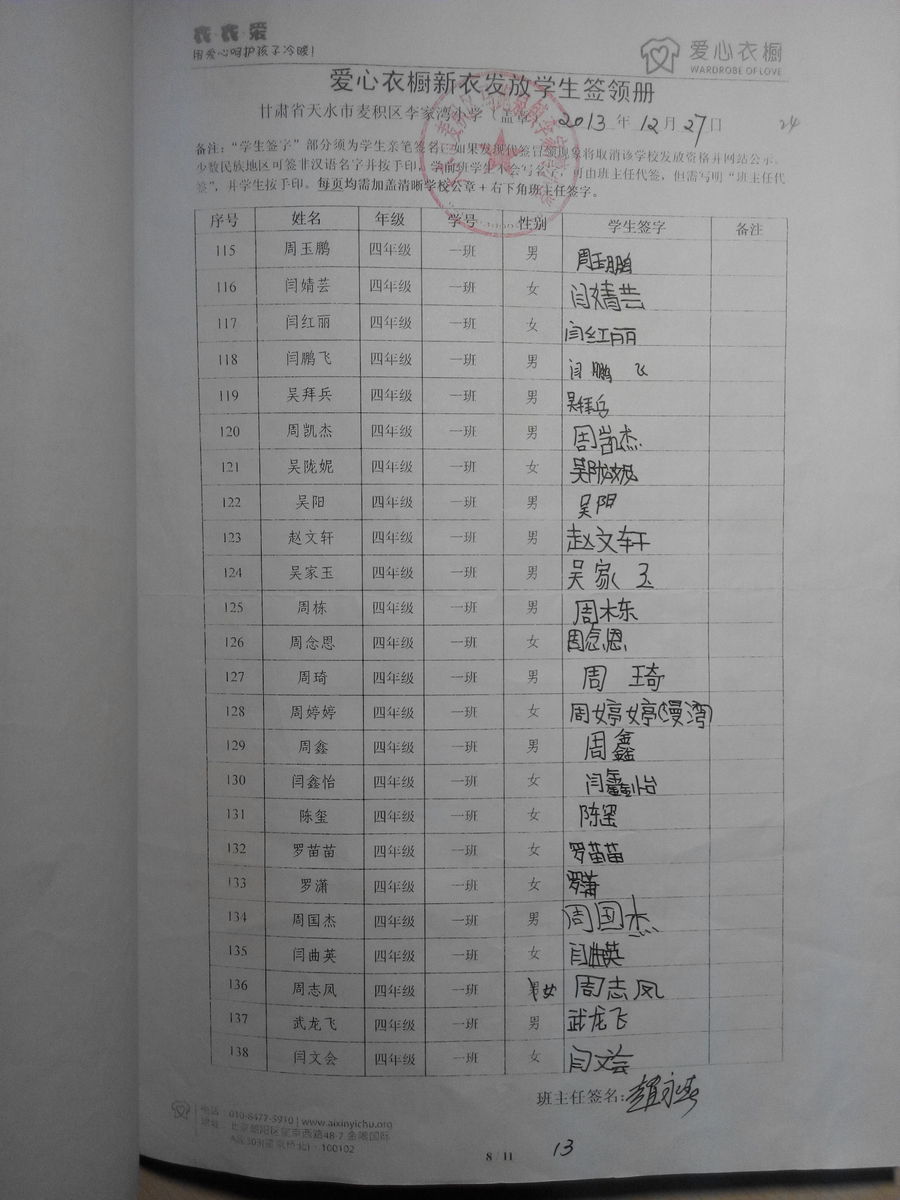 衣·衣·爱
用爱心呵护孩子冷暖!
爱心衣橱
WARDROBE OF LOVE
爱心衣橱新衣发放学生签领册
甘肃省天水市麦积区李家湾小学（盖章） 2013 年 12 月 27 日
24
备注：“学生签字”部分须为学生亲笔签名，如果发现代签冒领现象将取消该学校发放资格并网站公示。
少数民族地区可签非汉语名字并按手印，学前班学生不会写名字，可由班主任代签，但需写明“班主任代
签”，并学生按手印。每页均需加盖清晰学校公章+右下角班主任签字。
序号 姓名 年级 学号 性别 学生签字 备注
115 周玉鹏 四年级 一班 男 周玉鹏
116 闫婧芸 四年级 一班 女 闫婧芸
117 闫红丽 四年级 一班 女 闫红丽
118 闫鹏飞 四年级 一班 男 闫鹏飞
119 吴拜兵 四年级 一班 男 吴拜兵
120 周凯杰 四年级 一班 男 周凯杰
121 吴陇妮 四年级 一班 女 吴陇妮
122 吴阳 四年级 一班 男 吴阳
123 赵文轩 四年级 一班 男 赵文轩
124 吴家玉 四年级 一班 男 吴家玉
125 周栋 四年级 一班 男 周栋
126 周念恩 四年级 一班 女 周念恩
127 周琦 四年级 一班 男 周琦
128 周婷婷 四年级 一班 女 周婷婷(漫湾)
129 周鑫 四年级 一班 男 周鑫
130 闫鑫怡 四年级 一班 女 闫鑫怡
131 陈玺 四年级 一班 女 陈玺
132 罗苗苗 四年级 一班 女 罗苗苗
133 罗潇 四年级 一班 女 罗潇
134 周国杰 四年级 一班 男 周国杰
135 闫曲英 四年级 一班 女 闫曲英
136 周志凤 四年级 一班 男 女 周志凤
137 武龙飞 四年级 一班 男 武龙飞
138 闫文会 四年级 一班 女 闫文会
班主任签名:
电话：010-8477-5910 | www.aixinyichu.org
地址：北京朝阳区望京西路48-7 金隅国际
A座303(望京桥北)·100102
8 / 11
13